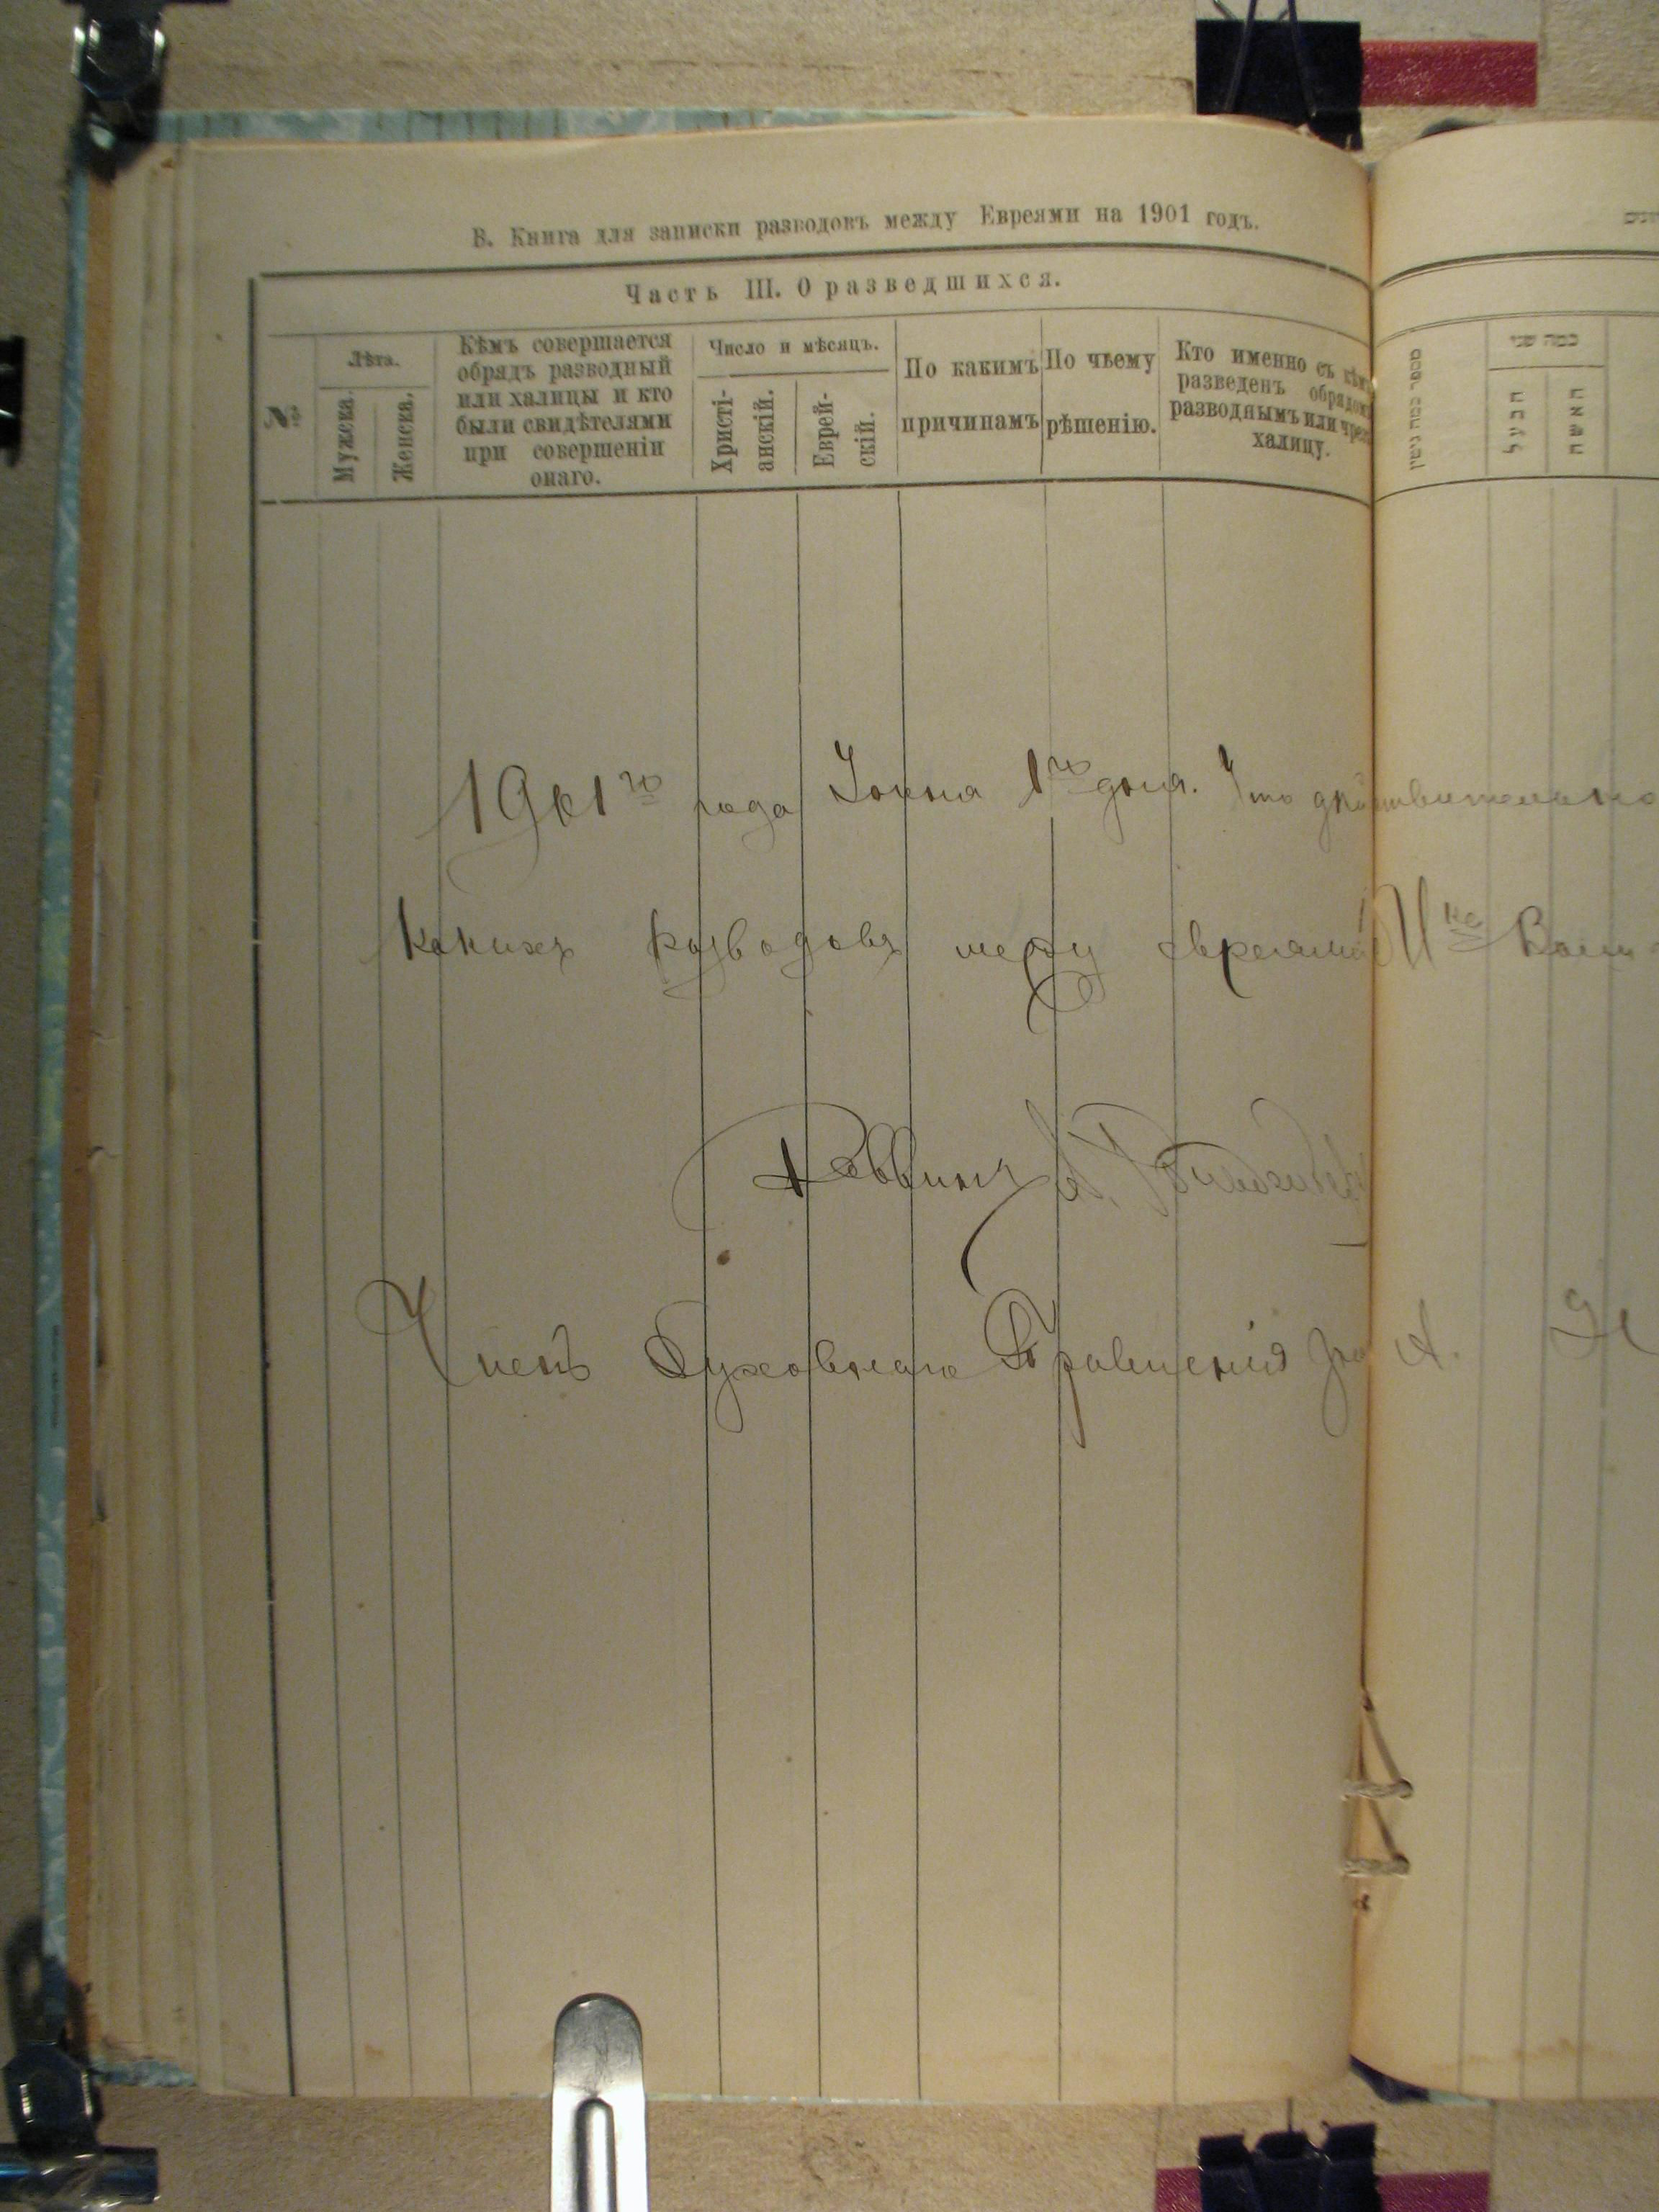 В. Книга для записки разводовъ между Евреями на 1901 годъ.
Часть III. О разведшихся.
№
Лѣта.
Мужеска.
Женска.
Кѣмъ совершается
обрядъ разводный
или халицы и кто
были свидѣтелями
при совершеніи
онаго.
Число и мѣсяцъ.
Христі-
анскій.
Еврей-
скій.
По какимъ
причинамъ
По чьему
рѣшенію.
Кто именно съ кѣмъ
разведенъ обрядомъ
разводнымъ или чрезъ
халицу.
מספר כמה גיטין
כמה שני
הבעל
האשה
1901го года Іюня 1го дня. Что действительно
какихъ разводовъ между евреями
Раввинъ
Членъ Духовнаго Правленія